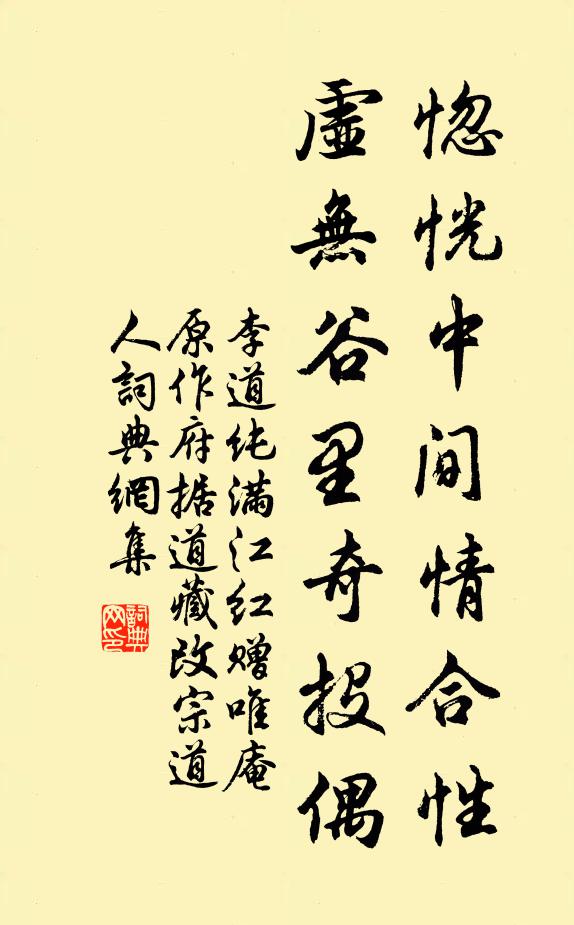 惚恍中间情合性
虛無谷里奇投偶
李道純滿江紅赠唯庵
原作府据道藏改宗道
人詞典網集
詞典网印